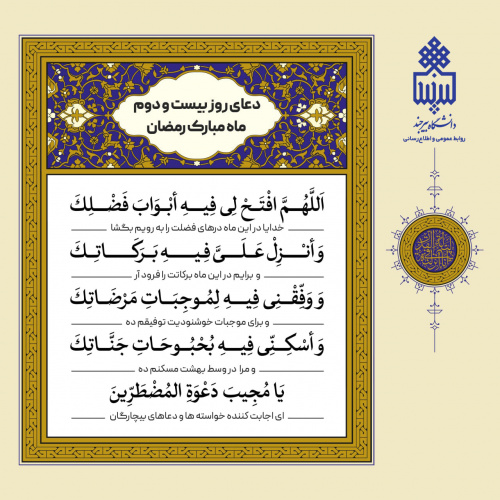 دعای روز بیست و دوم
ماه مبارک رمضان
اَللَّهُمَّ افْتَحْ لِی فِیهِ أبْوَابَ فَضْلِکَ
خدایا در این ماه درهای فضلت را به رویم بگشا
وَ أنْزِلْ عَلَیَّ فِیهِ بَرَکَاتِکَ
و برایم در این ماه برکاتت را فرود آر
وَ وَفِّقْنِی فِیهِ لِمُوجِبَاتِ مَرْضَاتِکَ
و برای موجبات خوشنودیت توفیقم ده
وَ أسْکِنِّی فِیهِ بُحْبُوحَاتِ جَنَّاتِکَ
و مرا در وسط بهشت مسکنم ده
یَا مُجِیبَ دَعْوَةِ المُضْطَرِّینَ
ای اجابت کننده خواسته ها و دعاهای بیچارگان
دانشگاه بیرجند
روابط عمومی و اطلاع رسانی